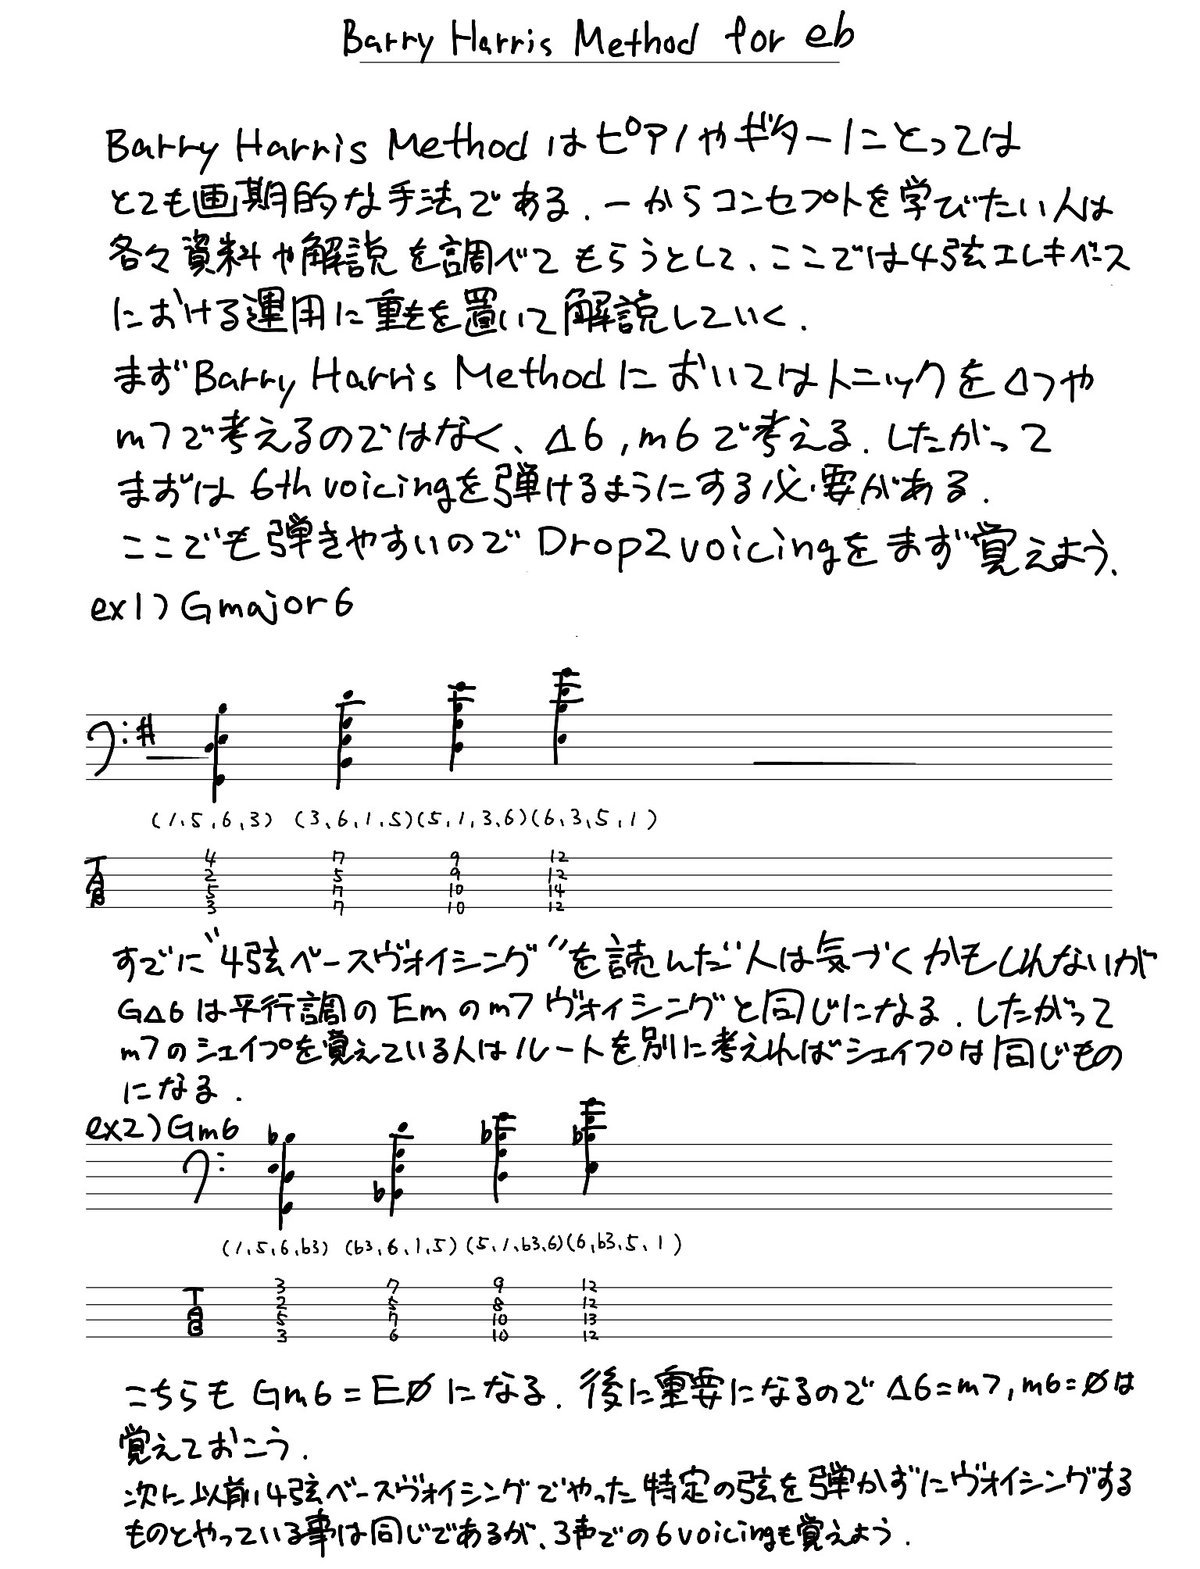 Barry Harris Method for eb
Barry Harris Methodはピアノやギターにとっては
とても画期的な手法である.一からコンセプトを学びたい人は
各々資料や解説を調べてもらうとして、ここでは4弦エレキベース
における運用に重きを置いて解説していく.
まずBarry Harris MethodにおいてはトニックをΔ7や
m7で考えるのではなく、Δ6,m6で考える.したがって
まずは6th voicingを弾けるようにする必要がある.
ここでも弾きやすいのでDrop2voicingをまず覚えよう.
ex1)Gmajor6
(1,5,6,3) (3,6,1,5)(5,1,3,6)(6,3,5,1)
T 4 7 9 12
A 2 5 9 12
B 5 7 10 14
3 7 10 12
すでに"4弦ベースヴォイシング"を読んだ人は気づくかもしれないが
GΔ6は平行調のEmのm7ヴォイシングと同じになる.したがって
m7のシェイプを覚えている人はルートを別に考えればシェイプは同じもの
になる.
ex2)Gm6
(1,5,6,b3) (b3,6,1,5)(5,1,b3,6)(6,b3,5,1)
T 3 7 9 12
2 5 8 12
A 5 7 10 13
B 3 6 10 12
こちらもGm6=EØになる.後に重要になるのでΔ6=m7,m6=Øは
覚えておこう.
次に以前4弦ベースヴォイシングでやった特定の弦を弾かずにヴォイシングする
ものとやっている事は同じであるが、3声での6voicingも覚えよう.